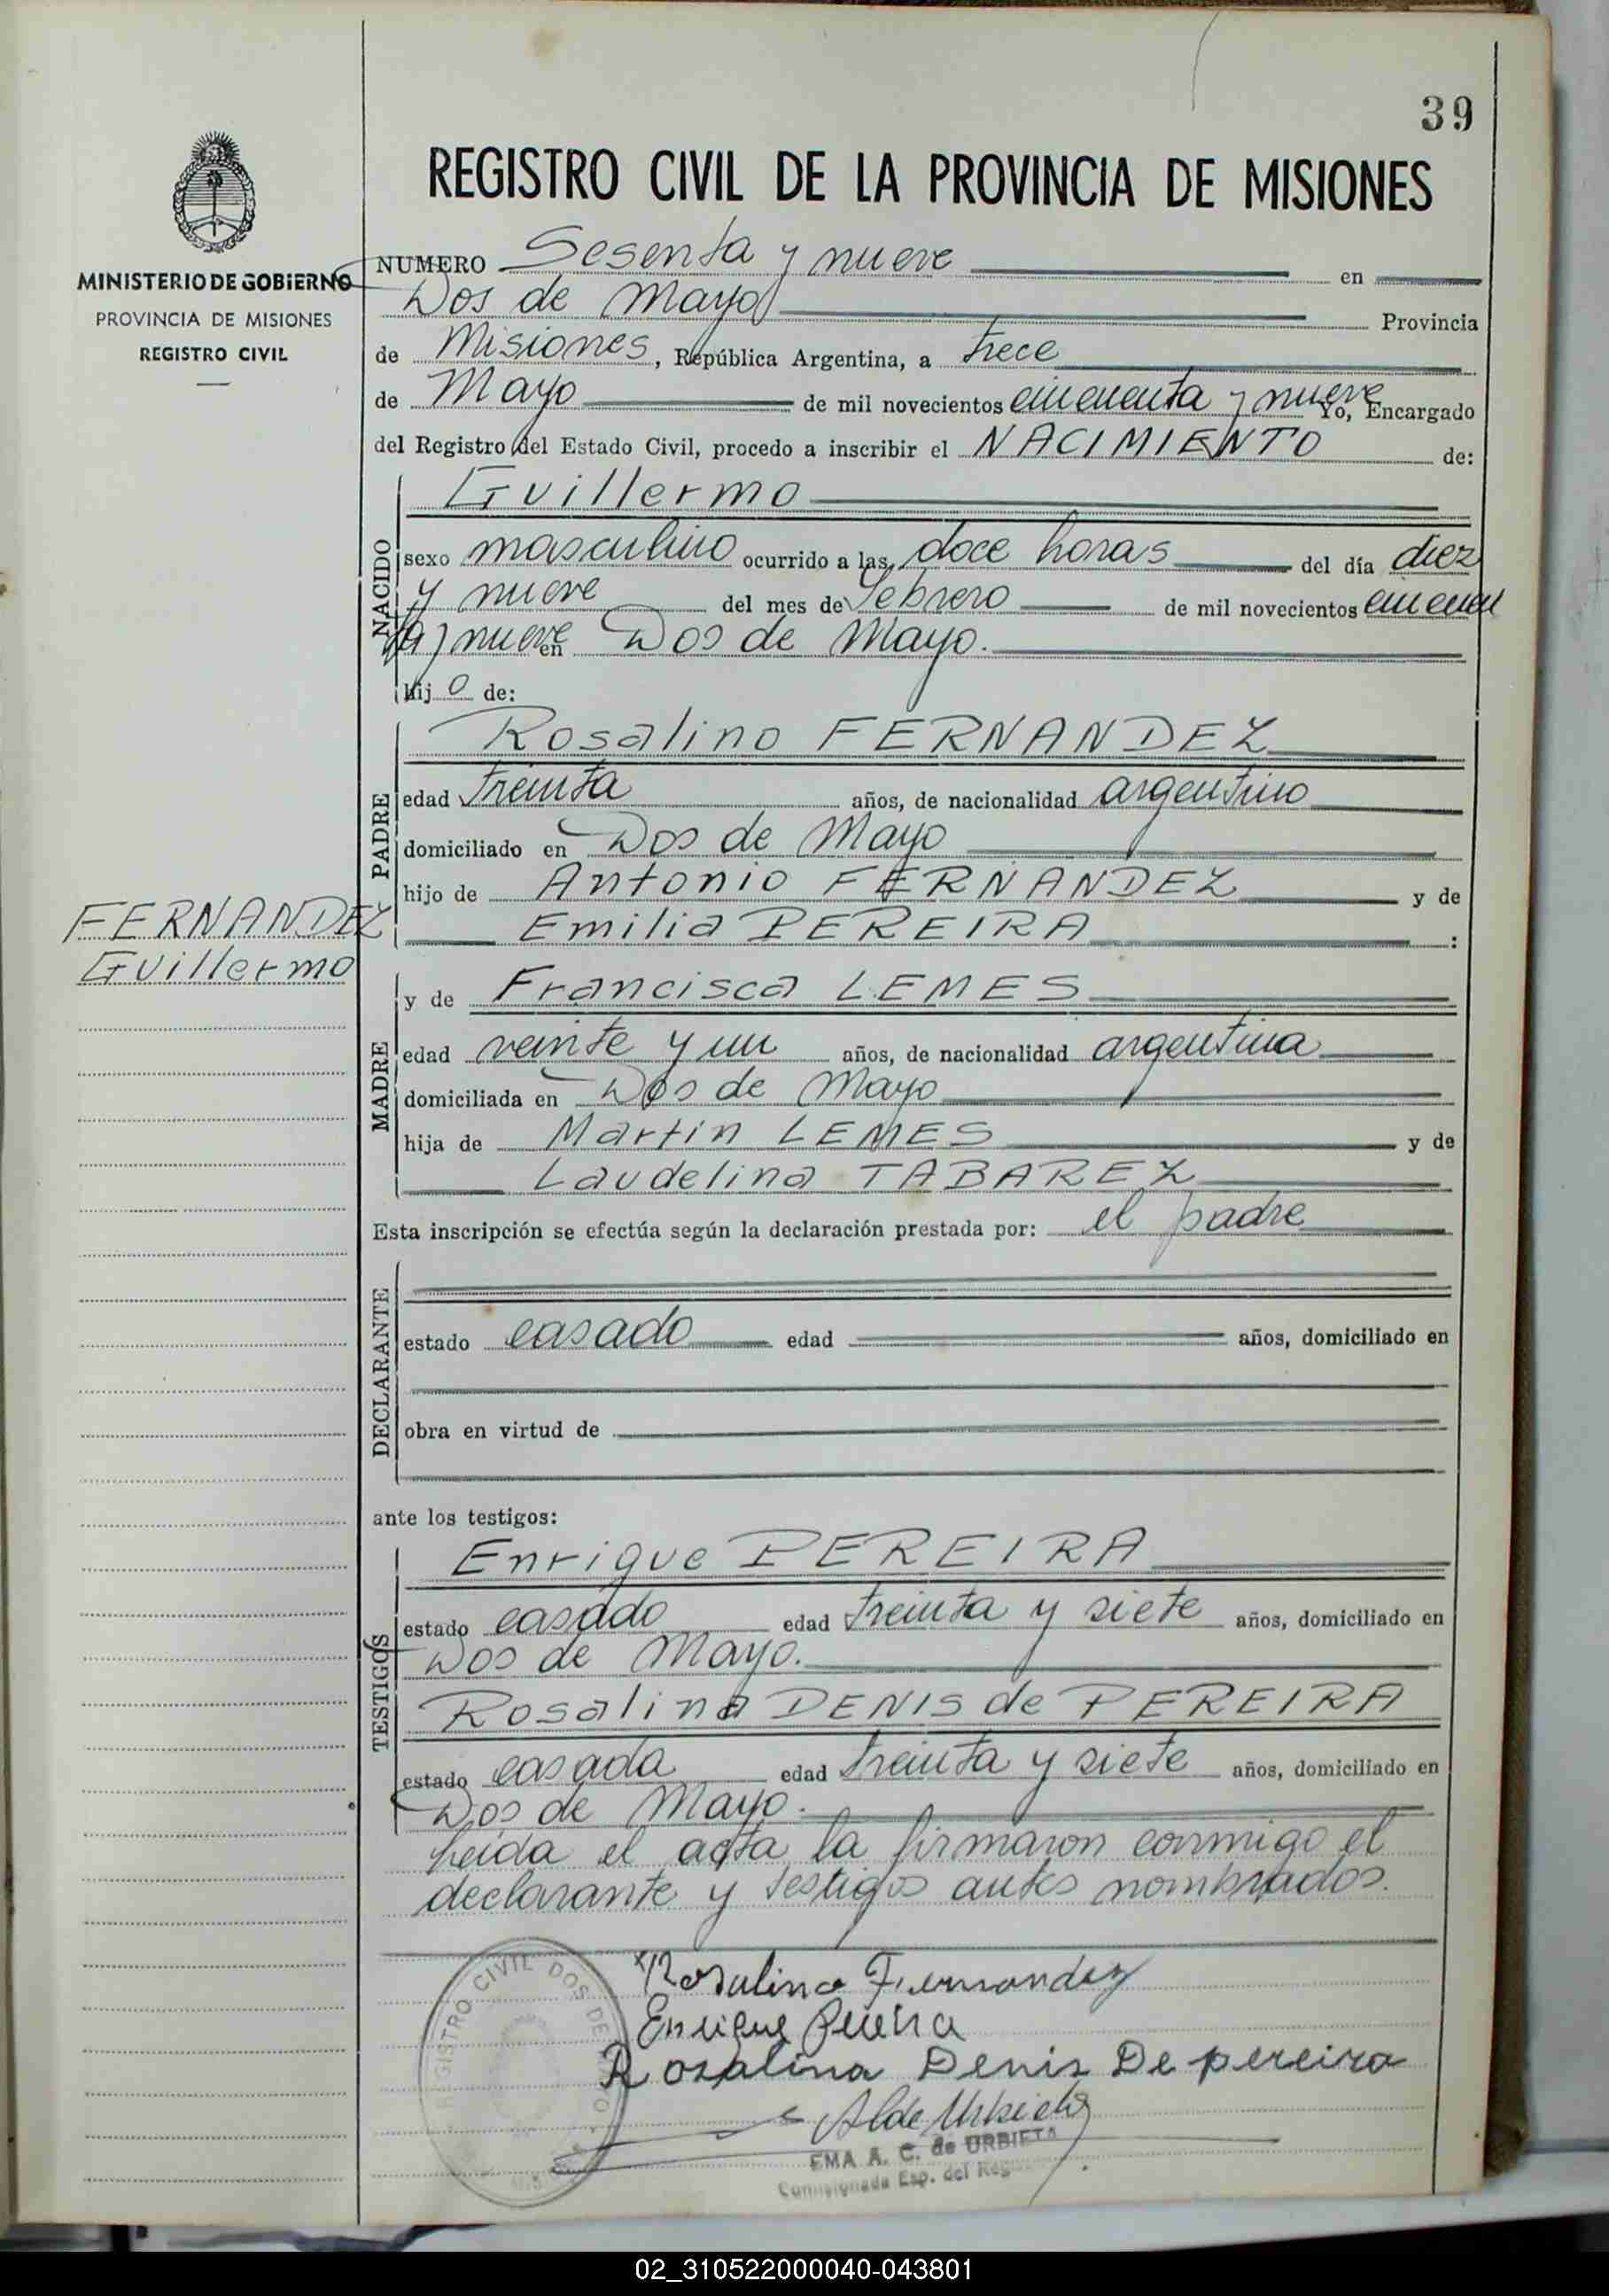 39
REGISTRO CIVIL DE LA PROVINCIA DE MISIONES
MINISTERIO DE GOBIERNO
PROVINCIA DE MISIONES
REGISTRO CIVIL
NUMERO Sesenta y nueve en
Dos de Mayo Provincia
de Misiones, República Argentina, a trece
de Mayo de mil novecientos cincuenta y nueve Yo, Encargado
del Registro del Estado Civil, procedo a inscribir el NACIMIENTO de:
NACIDO
Guillermo
sexo masculino ocurrido a las doce horas del día diez
y nueve del mes de Febrero de mil novecientos cincuen
ta y nueve en Dos de Mayo.
hij o de:
PADRE
Rosalino FERNANDEZ
edad treinta años, de nacionalidad argentino
domiciliado en Dos de Mayo
hijo de Antonio FERNANDEZ y de
Emilia PEREIRA :
FERNANDEZ
Guillermo
MADRE
y de Francisca LEMES
edad veinte y un años, de nacionalidad argentina
domiciliada en Dos de Mayo
hija de Martin LEMES y de
Laudelina TABAREZ
Esta inscripción se efectúa según la declaración prestada por: el padre
DECLARANTE
estado casado edad años, domiciliado en
obra en virtud de
ante los testigos:
TESTIGOS
Enrique PEREIRA
estado casado edad treinta y siete años, domiciliado en
Dos de Mayo.
Rosalina DENIS de PEREIRA
estado casada edad treinta y siete años, domiciliado en
Dos de Mayo.
Leída el acta la firmaron conmigo el
declarante y testigos antes nombrados.
Rosalino Fernandez
Enrique Pereira
Rosalina Denis De pereira
REGISTRO CIVIL DOS DE MAYO
EMA A. C. de URBIETA
Comisionada Esp. del Reg
02_310522000040-043801